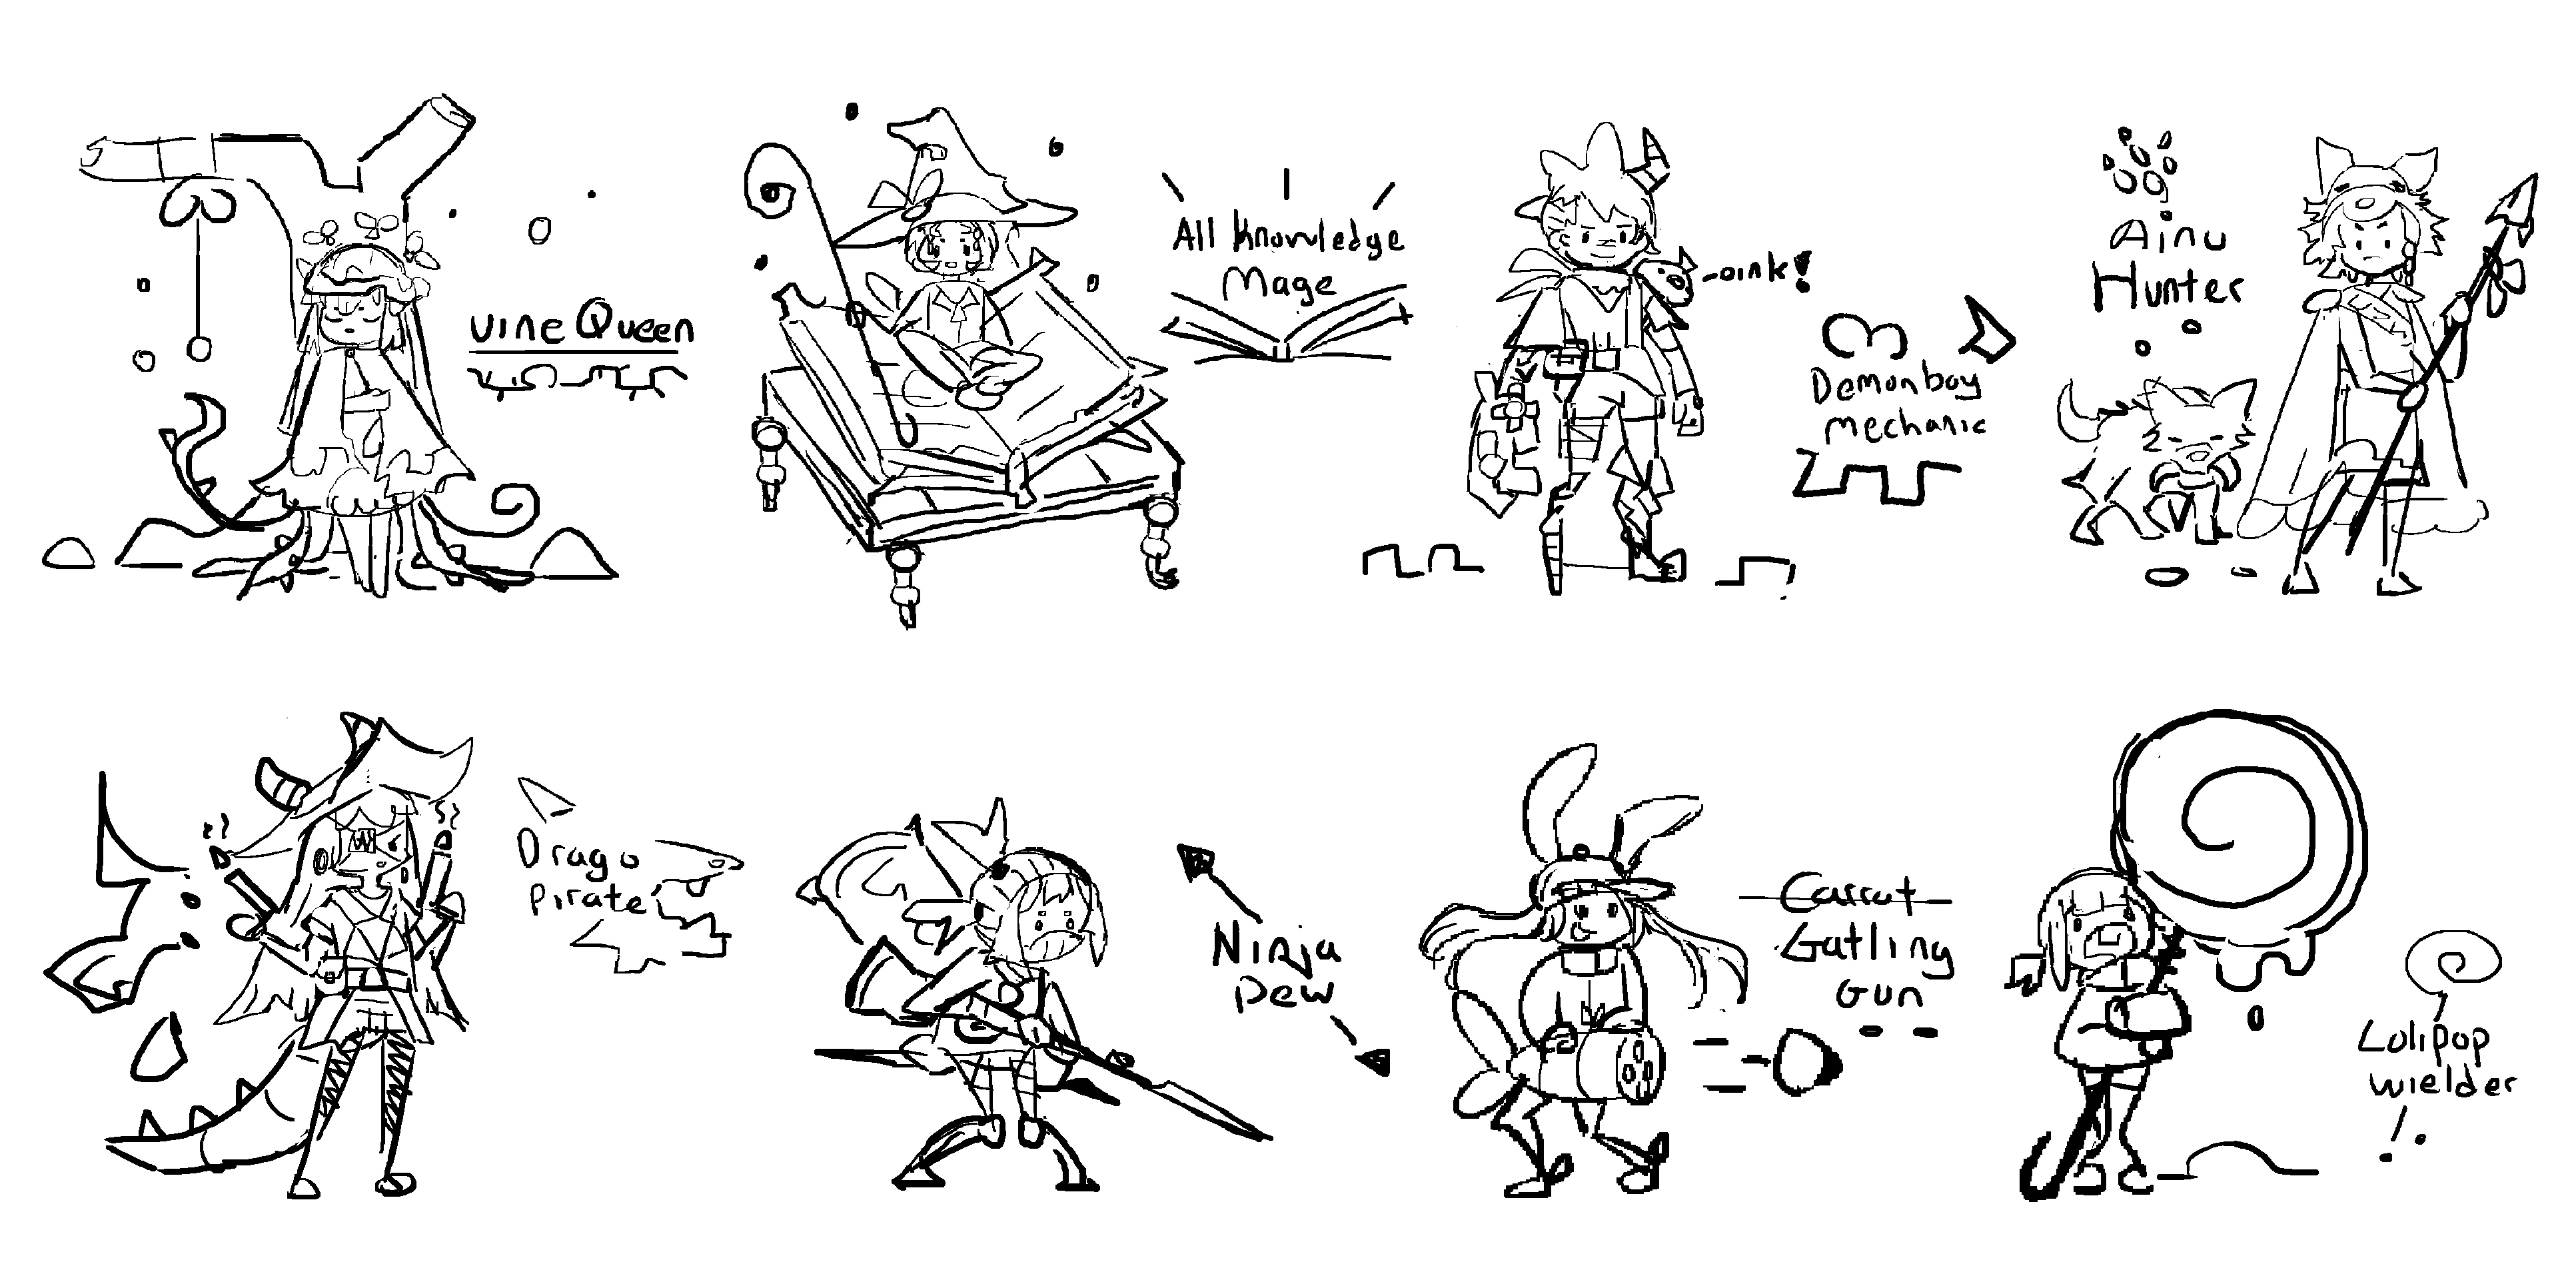 Vine Queen
All Knowledge
Mage
-oink!
Demonboy
mechanic
Ainu
Hunter
Drago
pirate
Ninja
Dew
Carrot
Gatling
Gun
Lolipop
wielder
!